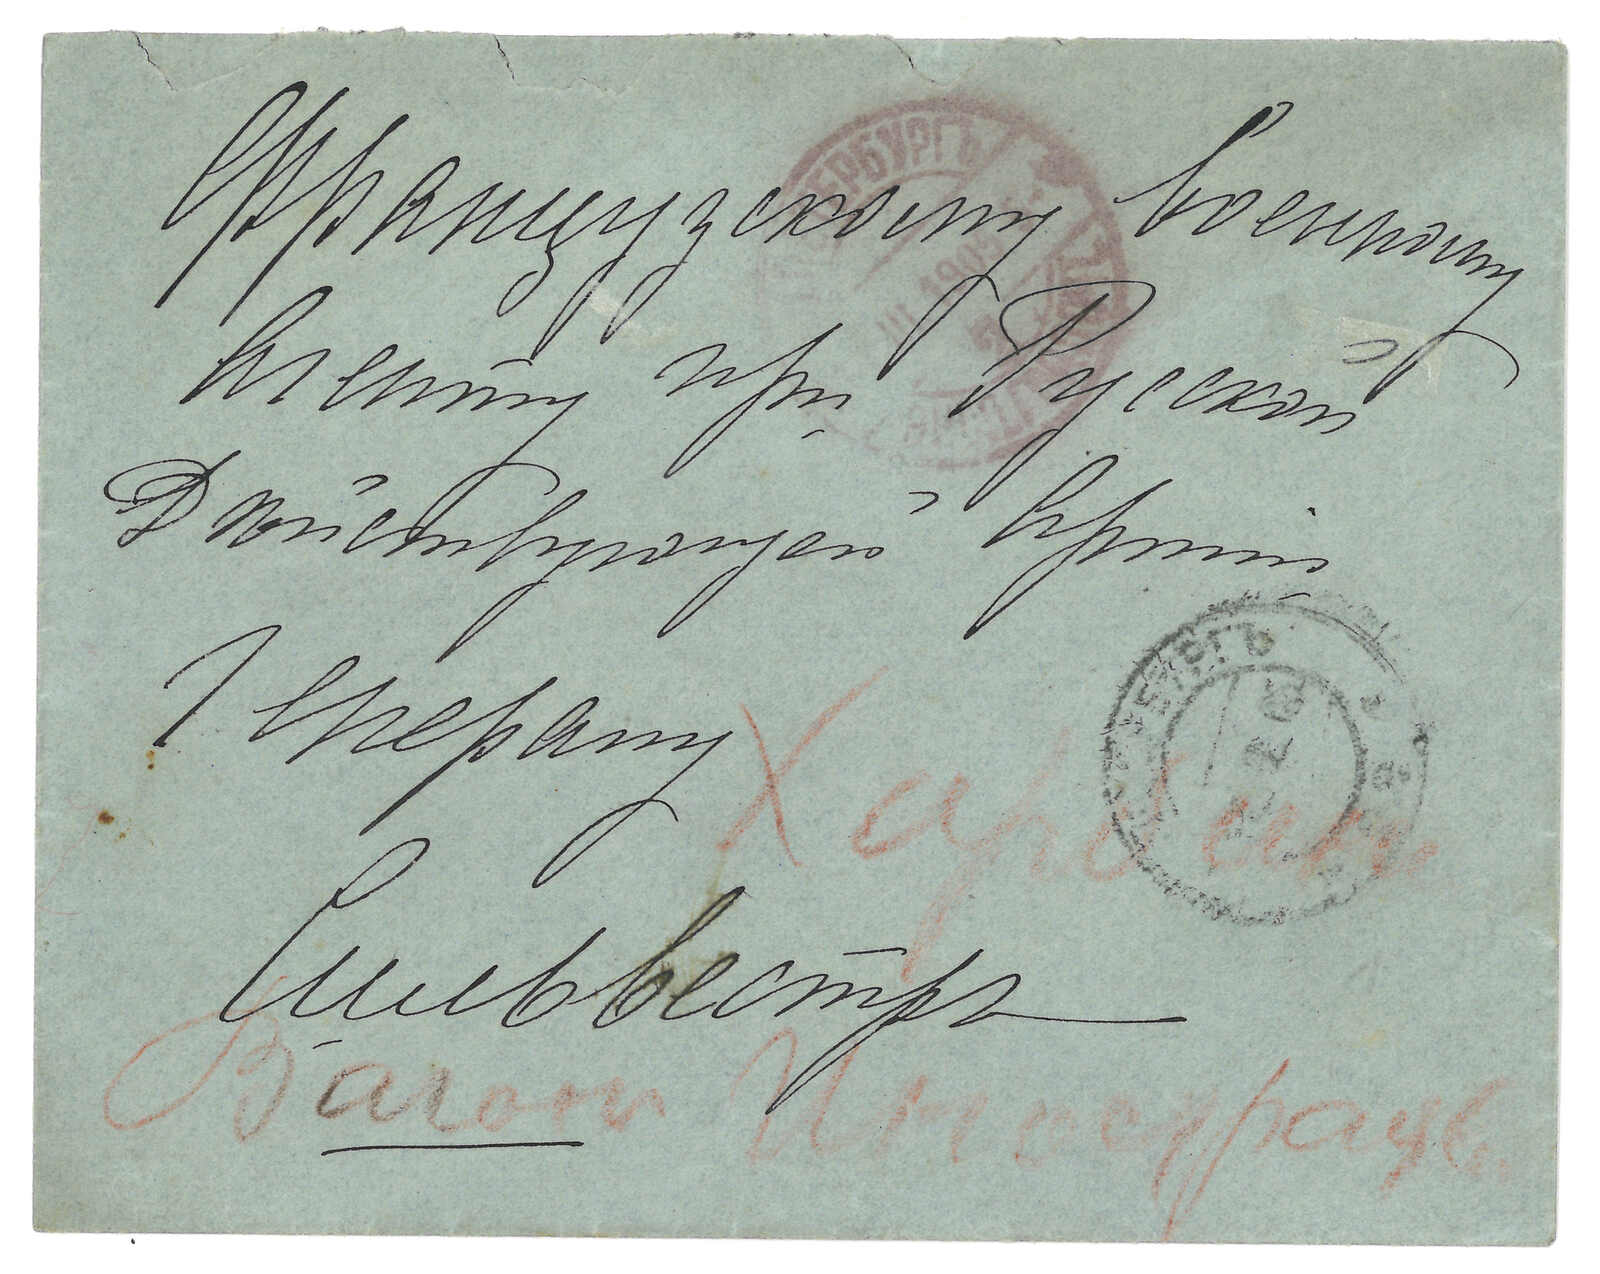 Французскому Военному
Агенту при Русской
Действующей Армiи
Генералу
Сильвестръ
Харбинъ
Вагонъ Иностранцевъ
ЕРБУРГЪ
1905
БУРГЪ